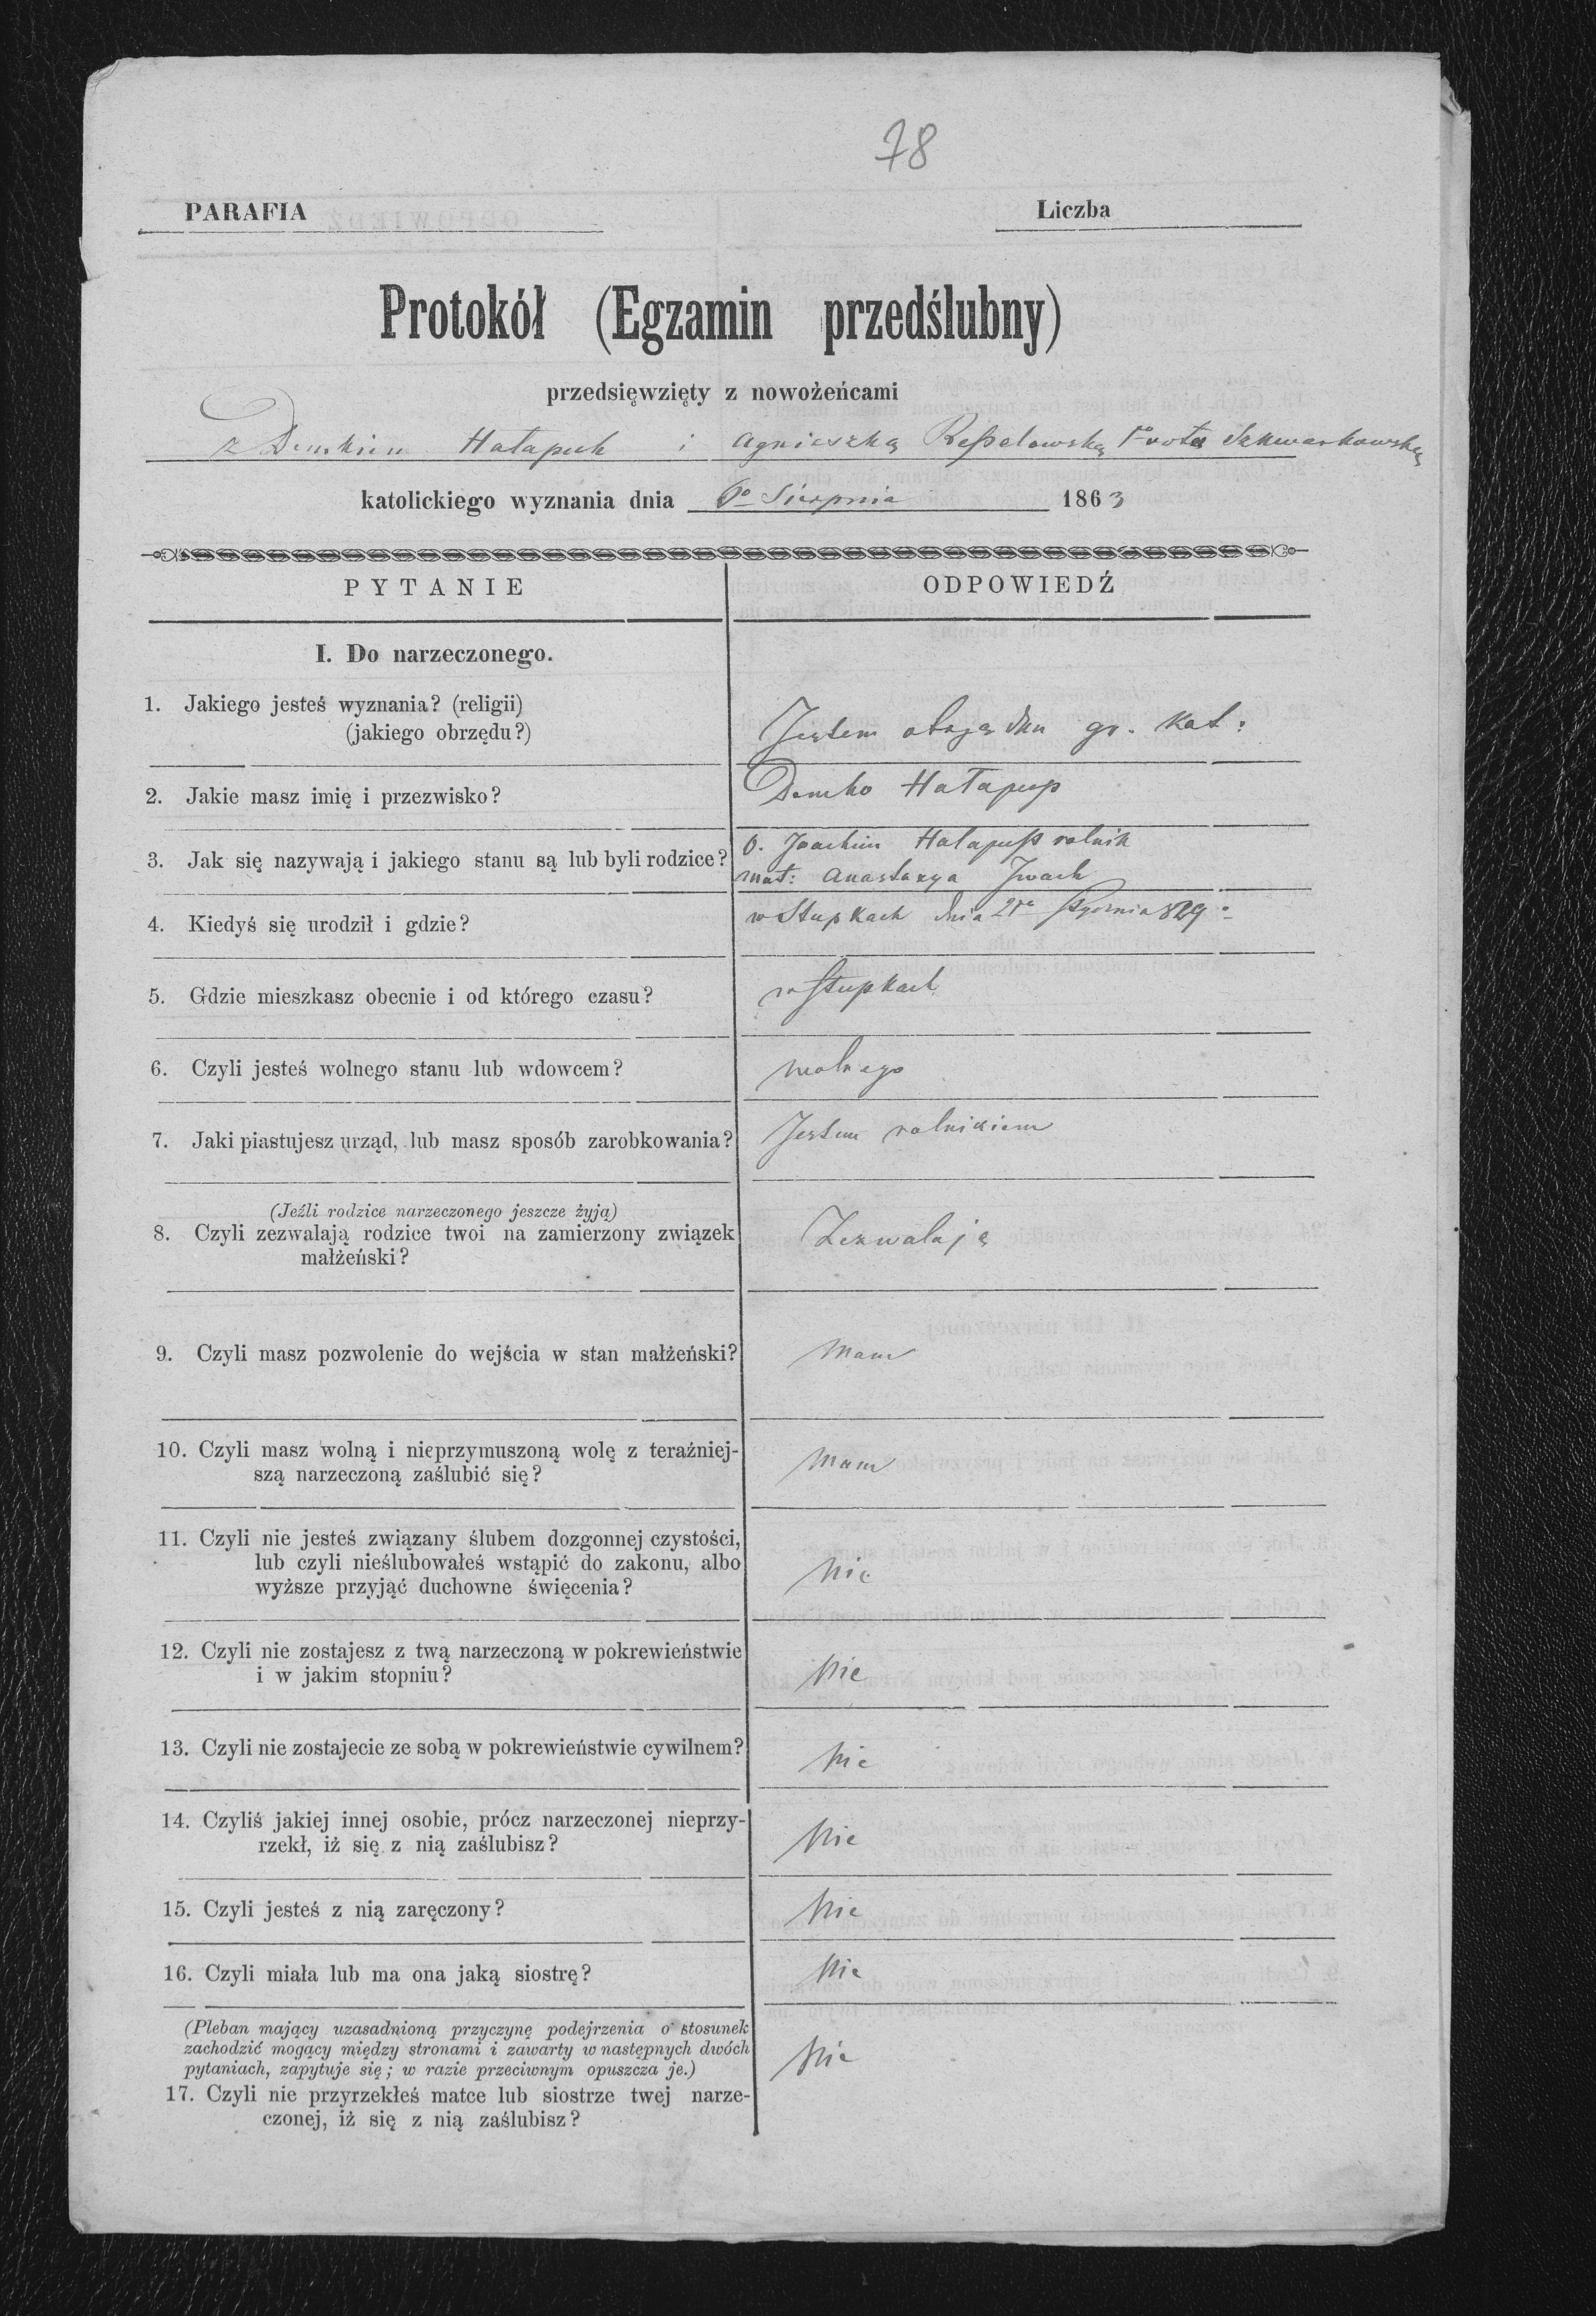 78
PARAFIA
Liczba
Protokół (Egzamin przedślubny)
przedsięwzięty z nowożeńcami
z Demkiem Hałapuk i Agnieszką 1o voto
katolickiego wyznania dnia 6o Sierpnia 1863
PYTANIE
ODPOWIEDŹ
I. Do narzeczonego.
1. Jakiego jesteś wyznania? (religii)
(jakiego obrzędu?)
Jestem obrządku gr. kat:
2. Jakie masz imię i przezwisko?
Demko
3. Jak się nazywają i jakiego stanu są lub byli rodzice?
O. Joachim rolnik
mat: Anastazya Iwach
4. Kiedyś się urodził i gdzie?
w Stupkach dnia Stycznia 829
5. Gdzie mieszkasz obecnie i od którego czasu?
w Stupkach
6. Czyli jesteś wolnego stanu lub wdowcem?
wolnego
7. Jaki piastujesz urząd, lub masz sposób zarobkowania?
Jestem rolnikiem
(Jeźli rodzice narzeczonego jeszcze żyją)
8. Czyli zezwalają rodzice twoi na zamierzony związek
małżeński?
Zezwalają
9. Czyli masz pozwolenie do wejścia w stan małżeński?
Mam
10. Czyli masz wolną i nieprzymuszoną wolę z teraźniej-
szą narzeczoną zaślubić się?
Mam
11. Czyli nie jesteś związany ślubem dozgonnej czystości,
lub czyli nieślubowałeś wstąpić do zakonu, albo
wyższe przyjąć duchowne święcenia?
Nie
12. Czyli nie zostajesz z twą narzeczoną w pokrewieństwie
i w jakim stopniu?
Nie
13. Czyli nie zostajecie ze sobą w pokrewieństwie cywilnem?
Nie
14. Czyliś jakiej innej osobie, prócz narzeczonej nieprzy-
rzekł, iż się z nią zaślubisz?
Nie
15. Czyli jesteś z nią zaręczony?
Nie
16. Czyli miała lub ma ona jaką siostrę?
Nie
(Pleban mający uzasadnioną przyczynę podejrzenia o stosunek
zachodzić mogący między stronami i zawarty w następnych dwóch
pytaniach, zapytuje się; w razie przeciwnym opuszcza je.)
17. Czyli nie przyrzekłeś matce lub siostrze twej narze-
czonej, iż się z nią zaślubisz?
Nie